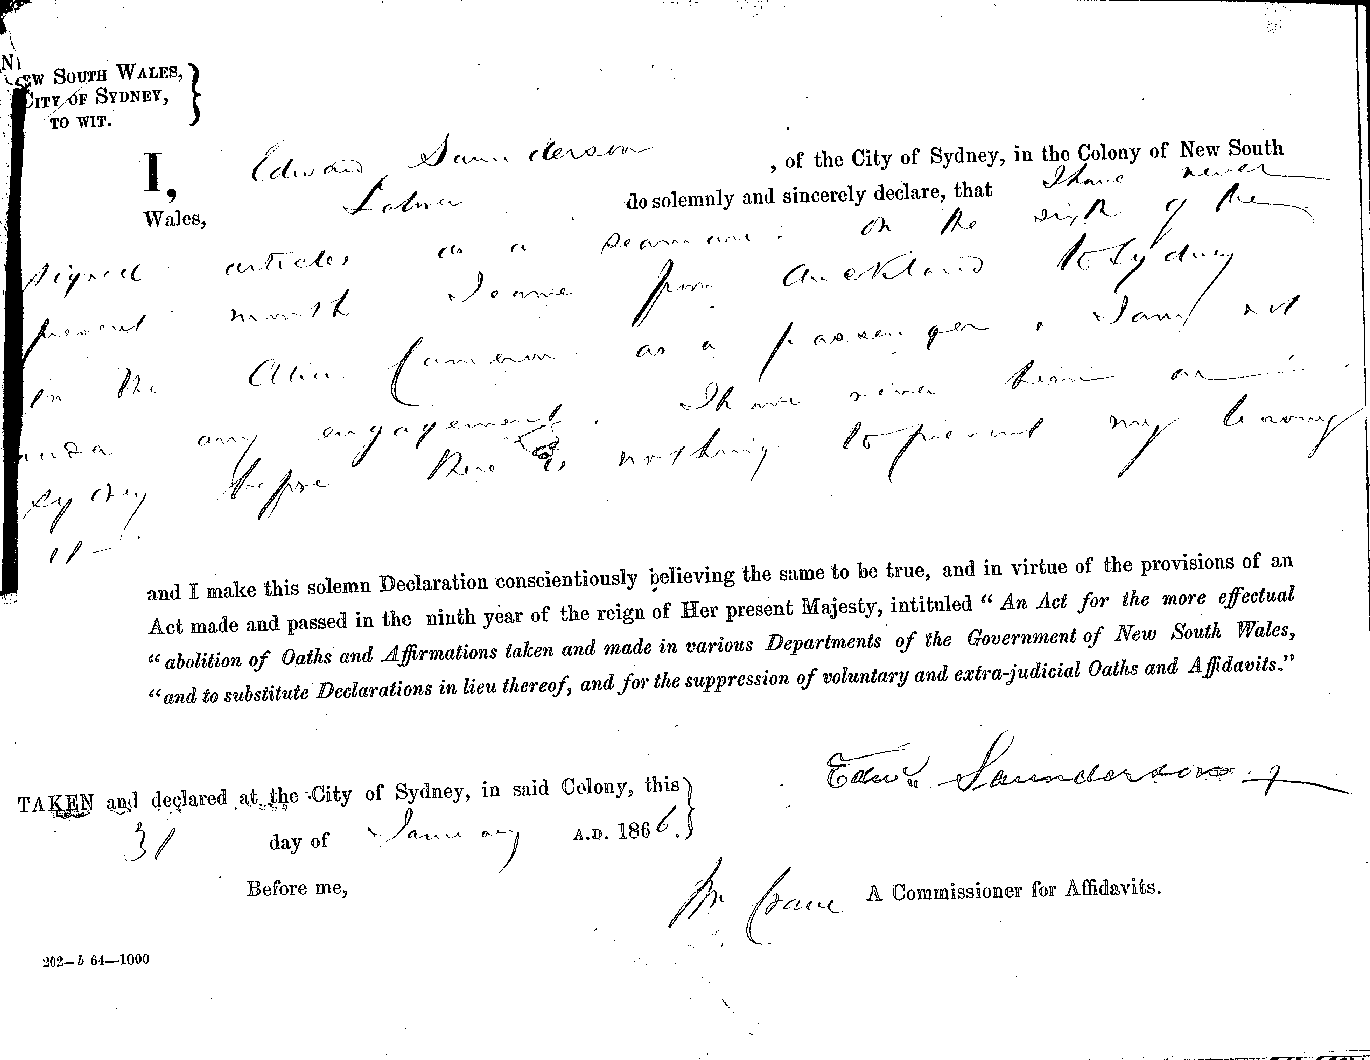 NEW SOUTH WALES,
CITY OF SYDNEY,
TO WIT.
I, Edward Saunderson, of the City of Sydney, in the Colony of New South
Wales, do solemnly and sincerely declare, that I have never
signed articles as a seaman. On the sixth of the
present month I came from Auckland to Sydney
in the Alice Cameron as a passenger. I am not
under any engagement. I have never been in
Sydney before there is nothing to prevent my leaving
it—
and I make this solemn Declaration conscientiously believing the same to be true, and in virtue of the provisions of an
Act made and passed in the ninth year of the reign of Her present Majesty, intituled “An Act for the more effectual
“abolition of Oaths and Affirmations taken and made in various Departments of the Government of New South Wales,
“and to substitute Declarations in lieu thereof, and for the suppression of voluntary and extra-judicial Oaths and Affidavits.”
Edwd. Saunderson
TAKEN and declared at the City of Sydney, in said Colony, this
31 day of January A.D. 1866.
Before me,
Crane A Commissioner for Affidavits.
202—b 64—1000